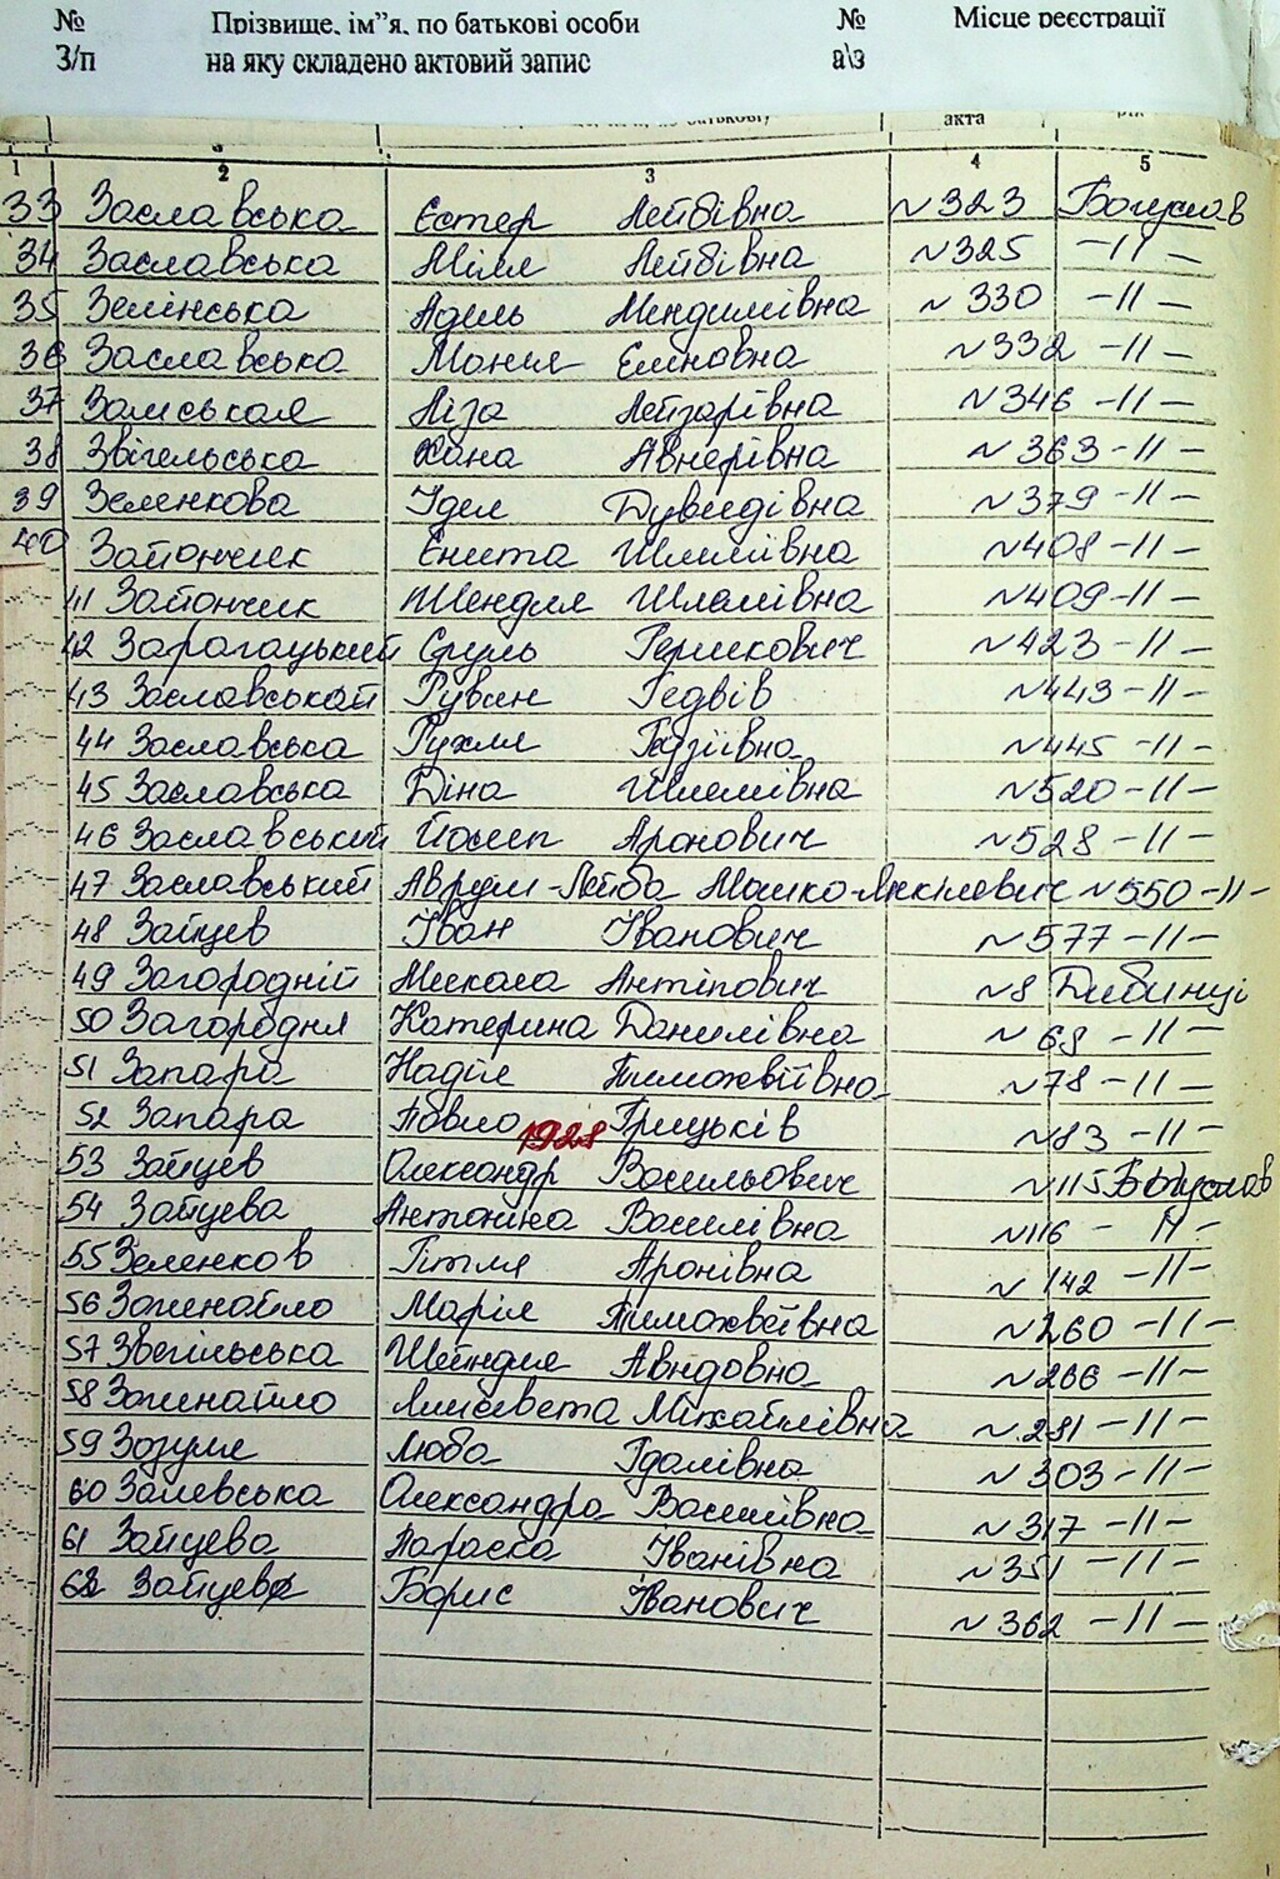 № Прізвище, ім”я, по батькові особи № Місце реєстрації
З/п на яку складено актовий запис а\з
акта
1 2 3 4 5
33 Заславська Єстер Лейбівна №323 Богуслав
34 Заславська Міля Лейбівна №325 -II-
35 Зелінська Адель Менделівна №330 -II-
36 Заславська Маня Еліновна №332 -II-
37 Замськая Ліза Лейзарівна №346 -II-
38 Звігельська Хана Авнерівна №363 -II-
39 Зеленкова Ідел Дувидівна №379 -II-
40 Зайончик Єнита Шлемівна №408 -II-
41 Зайончик Шендля Шлемівна №409 -II-
42 Зарагацький Сруль Гершкович №423 -II-
43 Заславськай Рувин Гедвів №443 -II-
44 Заславська Рухля №445 -II-
45 Заславська Діна Шлемівна №520 -II-
46 Заславський Йосип Аронович №528 -II-
47 Заславський Аврум-Лейба Мошко-Янкілевич №550 -II-
48 Зайцев Іван Іванович №577 -II-
49 Загородній Микола Антіпович №8 Дибинці
50 Загородня Катерина Данилівна №68 -II-
51 Запара Надія Тимохвіївна №78 -II-
52 Запара Павло Грицьків №83 -II-
1928
53 Зайцев Олександр Васильович №115 Богуслав
54 Зайцева Антоніна Василівна №116 - II -
55 Зеленков Гітля Аронівна №142 -II-
56 Заминайло Марія Тимохвіївна №260 -II-
57 Звегільська Шейндля Авидовна №266 -II-
58 Заминайло Єлисавета Міхайлівна №281 -II-
59 Зозуля Люба Ідалівна №303 -II-
60 Залевська Олександра Василівна №317 -II-
61 Зайцева Параска Іванівна №351 -II-
62 Зайцев Борис Іванович №362 -II-